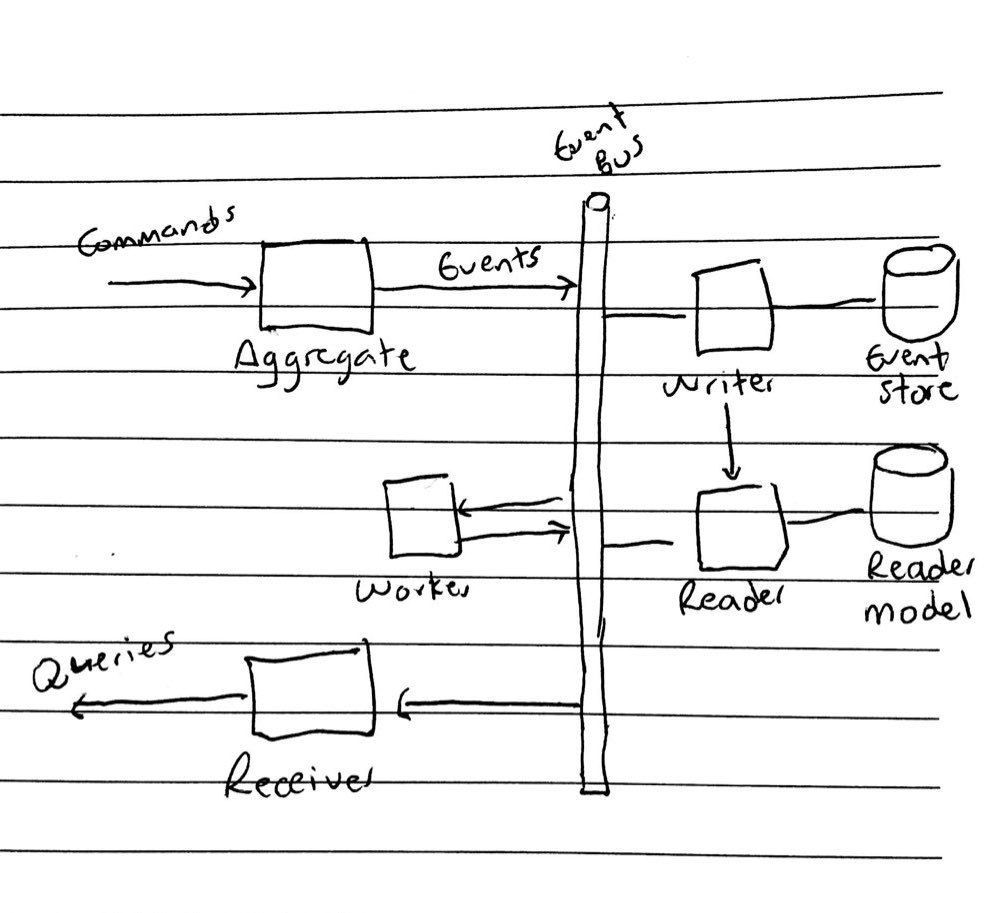 Event
Bus
Commands
Events
Aggregate
Writer
Event
store
Worker
Reader
Reader
model
Queries
Receiver